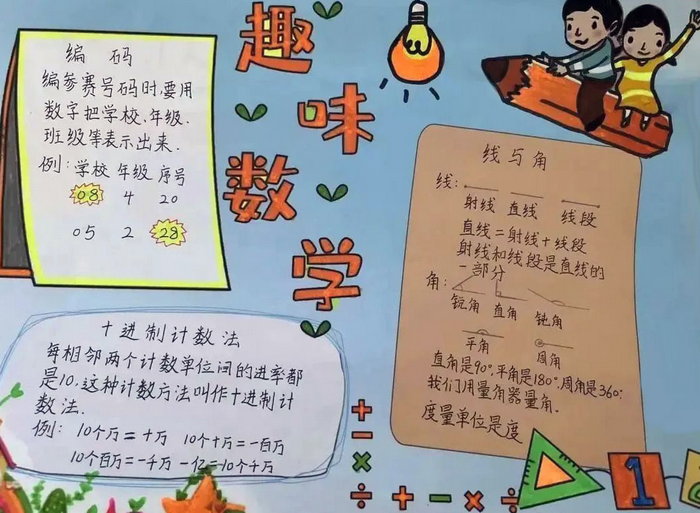 趣味数学
编 码
编参赛号码时要用
数字把学校.年级.
班级等表示出来.
例:学校 年级 序号
08 4 20
05 2 28
十进制计数法
每相邻两个计数单位间的进率都
是10.这种计数方法叫作十进制计
数法.
例: 10个万=十万 10个十万=一百万
10个百万=一千万 一亿=10个千万
线与角
线:
射线 直线 线段
直线=射线+线段
射线和线段是直线的
一部分
角:
锐角 直角 钝角
平角 周角
直角是90°,平角是180°,周角是360°.
我们用量角器量角.
度量单位是度
+
−
×
÷ + − × ÷
1